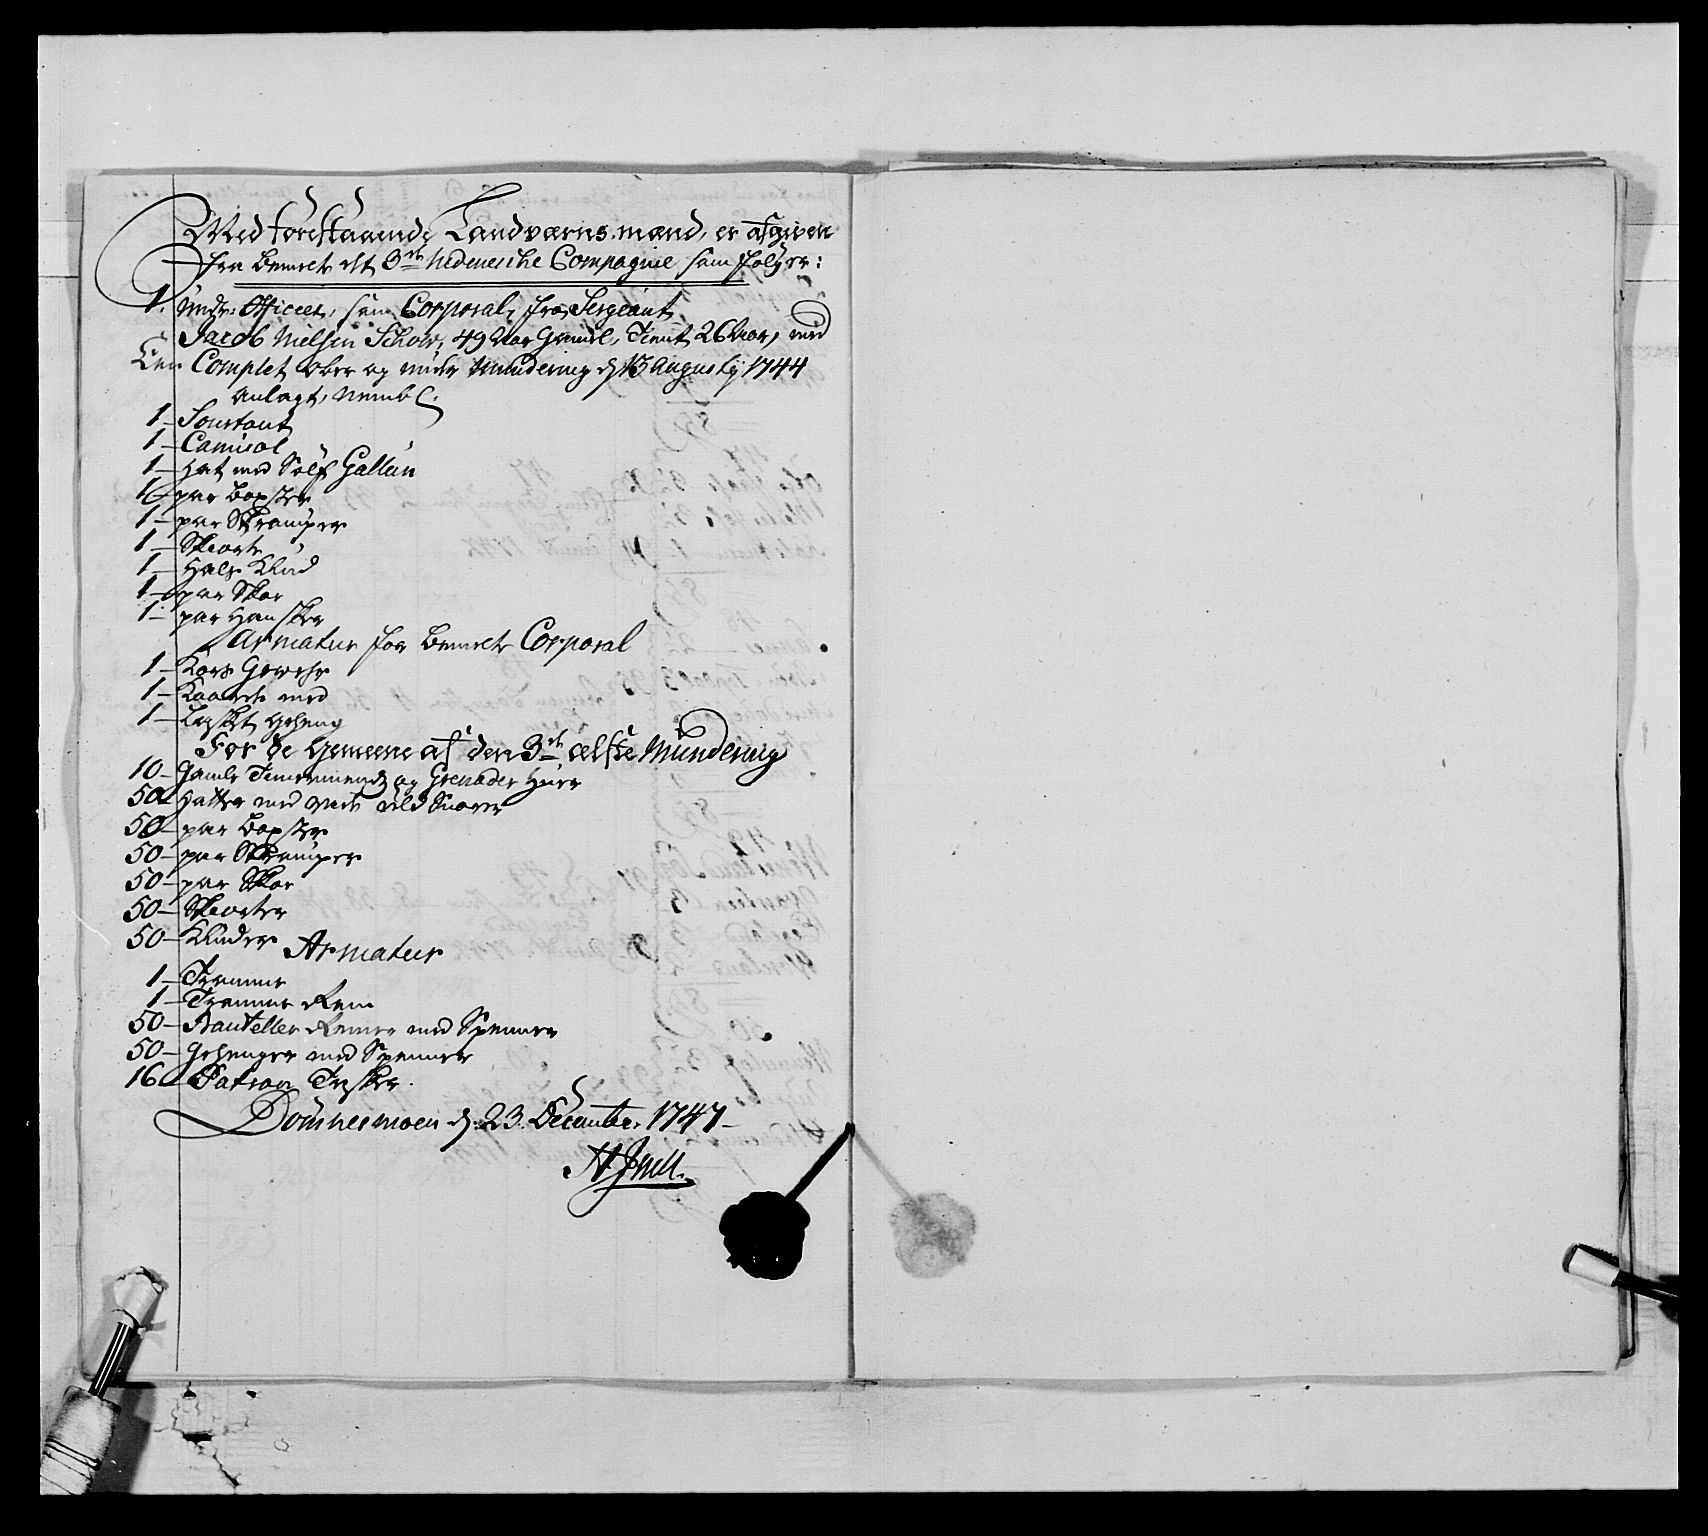 Med forestaaende Landværns mænd, er afgiven
fra bemelte dt 3de Nedenesche Compagnie som følger:
1. Under Officer, som Corporal, fra Sergeant
Jacob Nielsen Schow, 49 Aar Gamel, Tient 26 Aar, med
Een Complet ober og under Mundering d 13 Augusty 1744
Anlagt, Nembl.
1 Sourtout
1 Camisol
1 Hat med Sølf Gallun
1 par Boxser
1 par Strømper
1 Skiorte
1 Hals Klud
1 par Skoe
1 par Handsker
Armatur for bemelte Corporal
1 Kors Gewehr
1 Kaarde med
1 Geheng
For de Gemeene af den 3de Mundering
10 Gamle og Grenader Huer
50 Hatter med Snorer
50 par Boxser
50 par Strømper
50 par Skoe
50 Skiorter
50 Kluder
Armatur
1 Tromme
1 Tromme Rem
50 Remer med Spenner
50 Gehenger med Spenner
16 Patron Tasker.
Dømnesmoen d. 23. Decembr. 1747